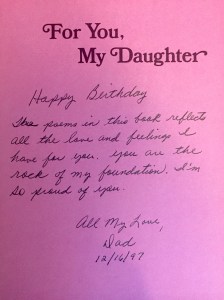 For You,
My Daughter
Happy Birthday
The poems in this book reflect
all the love and feelings I
have for you. you are the
rock of my foundation. I'm
so proud of you.
All My Love,
Dad
12/16/97